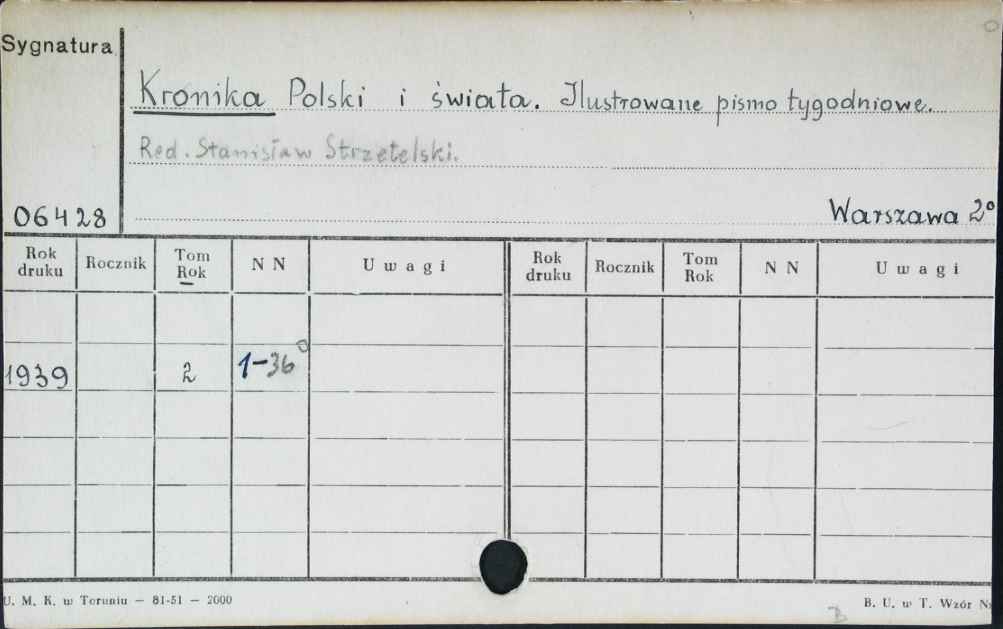 Sygnatura
Kronika Polski i świata. Ilustrowane pismo tygodniowe.
Red. Stanisław Strzetelski.
06428
Warszawa 2°
Rok druku Rocznik Tom Rok N N Uwagi Rok druku Rocznik Tom Rok N N Uwagi
1939 2 1-36°
U. M. K. w Toruniu — 81-51 — 2000
B. U. w T. Wzór